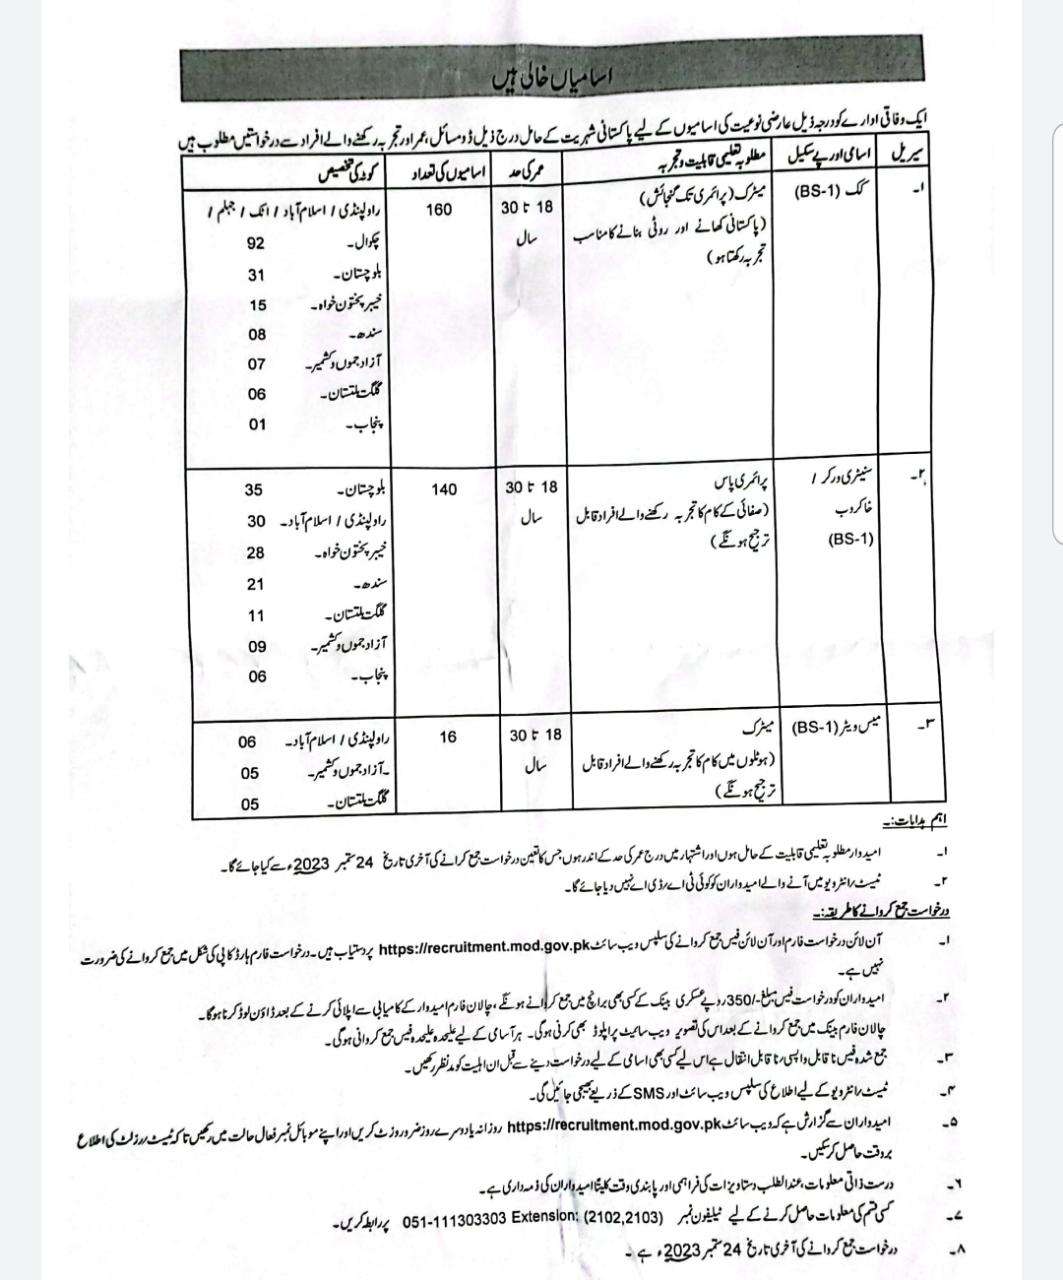 اسامیاں خالی ہیں
ایک وفاقی ادارے کو درجہ ذیل عارضی نوعیت کی اسامیوں کے لیے پاکستانی شہریت کے حامل درج ذیل ڈومسائل، عمر اور تجربہ رکھنے والے افراد سے درخواستیں مطلوب ہیں
سیریل اسامی اور پے سکیل مطلوبہ تعلیمی قابلیت و تجربہ عمر کی حد اسامیوں کی تعداد کوٹہ کی تخصیص
۱۔ کک (BS-1) میٹرک (پرائمری تک گنجائش) 18 تا 30 160 راولپنڈی / اسلام آباد / اٹک / جہلم /
(پاکستانی کھانے اور روٹی بنانے کا مناسب سال چکوال۔ 92
تجربہ رکھتا ہو) بلوچستان۔ 31
خیبر پختون خواہ۔ 15
سندھ۔ 08
آزاد جموں و کشمیر۔ 07
گلگت بلتستان۔ 06
پنجاب۔ 01
۲۔ سینیٹری ورکر / پرائمری پاس 18 تا 30 140 بلوچستان۔ 35
خاکروب (صفائی کے کام کا تجربہ رکھنے والے افراد قابل سال راولپنڈی / اسلام آباد۔ 30
(BS-1) ترجیح ہونگے) خیبر پختون خواہ۔ 28
سندھ۔ 21
گلگت بلتستان۔ 11
آزاد جموں و کشمیر۔ 09
پنجاب۔ 06
۳۔ میس ویٹر (BS-1) میٹرک 18 تا 30 16 راولپنڈی / اسلام آباد۔ 06
(ہوٹلوں میں کام کا تجربہ رکھنے والے افراد قابل سال ۔آزاد جموں و کشمیر۔ 05
ترجیح ہونگے) گلگت بلتستان۔ 05
اہم ہدایات:۔
۱۔ امیدوار مطلوبہ تعلیمی قابلیت کے حامل ہوں اور اشتہار میں درج عمر کی حد کے اندر ہوں جس کا تعین درخواست جمع کرانے کی آخری تاریخ 24 ستمبر 2023ء سے کیا جائے گا۔
۲۔ ٹیسٹ / انٹرویو میں آنے والے امیدواران کو کوئی ٹی اے / ڈی اے نہیں دیا جائے گا۔
درخواست جمع کروانے کا طریقہ:۔
۱۔ آن لائن درخواست فارم اور آن لائن فیس جمع کروانے کی سلپس ویب سائٹ https://recruitment.mod.gov.pk پر دستیاب ہیں۔ درخواست فارم ہارڈ کاپی کی شکل میں جمع کروانے کی ضرورت
نہیں ہے۔
۲۔ امیدواران کو درخواست فیس مبلغ -/350 روپے عسکری بینک کے کسی بھی برانچ میں جمع کرانے ہونگے، چالان فارم امیدوار کے کامیابی سے اپلائی کرنے کے بعد ڈاؤن لوڈ کرنا ہوگا۔
چالان فارم بینک میں جمع کروانے کے بعد اس کی تصویر ویب سائیٹ پر اپلوڈ بھی کرنی ہوگی۔ ہر آسامی کے لیے علیحدہ علیحدہ فیس جمع کروانی ہوگی۔
۳۔ جمع شدہ فیس نا قابل واپسی / نا قابل انتقال ہے اس لیے کسی بھی اسامی کے لیے درخواست دینے سے قبل ان اہلیت کو مدنظر رکھیں۔
۴۔ ٹیسٹ / انٹرویو کے لیے اطلاع کی سلپس ویب سائٹ اور SMS کے ذریعے بھیجی جائیں گی۔
۵۔ امیدواران سے گزارش ہے کہ ویب سائٹ https://recruitment.mod.gov.pk روزانہ یا دوسرے روز ضرور وزٹ کریں اور اپنے موبائل نمبر فعال حالت میں رکھیں تا کہ ٹیسٹ / رزلٹ کی اطلاع
بروقت حاصل کر سکیں۔
۶۔ درست ذاتی معلومات، عند الطلب دستاویزات کی فراہمی اور پابندی وقت کلیتاً امیدواران کی ذمہ داری ہے۔
۷۔ کسی قسم کی معلومات حاصل کرنے کے لیے ٹیلیفون نمبر 051-111303303 Extension: (2102,2103) پر رابطہ کریں۔
۸۔ درخواست جمع کروانے کی آخری تاریخ 24 ستمبر 2023ء ہے۔